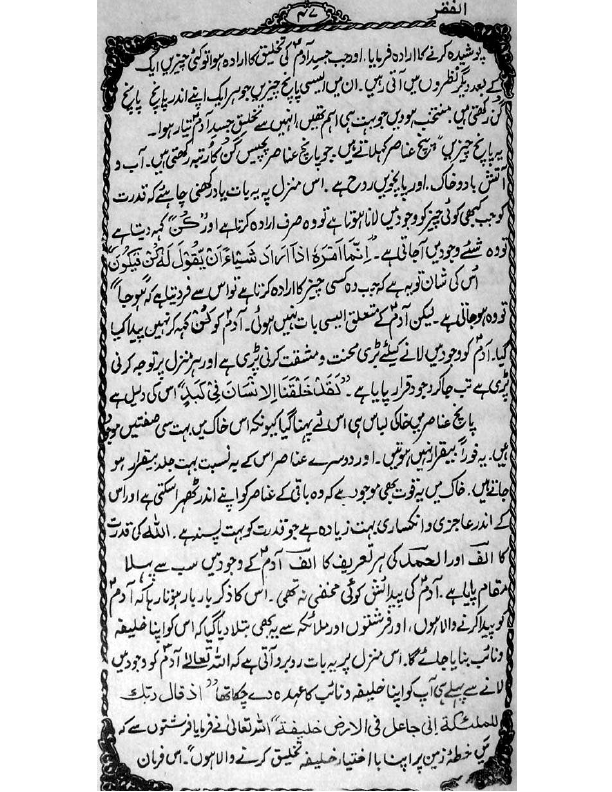 الفقر
۴۷
پوشیدہ کرنے کا ارادہ فرمایا۔ اور جب جسدِ آدمؑ کی تخلیق کا ارادہ ہوا تو کئی چیزیں ایک
کے بعد دیگر نظروں میں آتی رہیں۔ ان میں ایسی پانچ چیزیں جو ہر ایک اپنے اندر پانچ پانچ
گُن رکھتی ہیں منتخب ہوویں جو بہت ہی اہم تھیں، انہیں سے تخلیق جسدِ آدمؑ تیار ہوا۔
یہ پانچ چیزیں پنج عناصر کہلاتے ہیں۔ جو پانچ عناصر پچیس گُن کا رتبہ رکھتی ہیں۔ آب و
آتش باد و خاک۔ اور پانچویں روح ہے۔ اس منزل پہ یہ بات یاد رکھنی چاہئے کہ قدرت
کو جب کبھی کوئی چیز کو وجود میں لانا ہوتا ہے تو وہ صرف ارادہ کرتا ہے اور "کُن" کہہ دیتا ہے
تو وہ شئے وجود میں آجاتی ہے۔ "اِنَّمَا اَمْرُہٗ اِذَا اَرَادَ شَیْاءً اَنْ یَّقُوْلَ لَہٗ کُنْ فَیَکُوْنُ"
اُس کی شان تو یہ ہے کہ جب وہ کسی چیز کا ارادہ کرتا ہے تو اس سے فردیتا ہے کہ "ہوجا"
تو وہ ہو جاتی ہے۔ لیکن آدمؑ کے متعلق ایسی بات نہیں ہوئی۔ آدمؑ کو کُن کہہ کر نہیں پیدا کیا
گیا۔ آدمؑ کو وجود میں لانے کیلئے بڑی محنت و مشقت کرنی پڑی ہے اور ہر منزل پر توجہ کرنی
پڑی ہے تب جاکر وجود قرار پایا ہے۔ "لَقَدْ خَلَقْنَا الْاِنْسَانَ فِیْ کَبَدٍ" اس کی دلیل ہے
پانچ عناصر میں خاکی لباس ہی اس لئے پہنا گیا کیونکہ اس خاک میں بہت سی صفتیں موجود
ہیں۔ یہ فوراً بیقرار نہیں ہوتیں۔ اور دوسرے عناصر اس کے بہ نسبت بہت جلد بیقرار ہو
جاتے ہیں۔ خاک میں یہ قوت بھی موجود ہے کہ وہ باقی کے عناصر کو اپنے اندر ٹھہرا سکتی ہے اور اس
کے اندر عاجزی و انکساری بہت زیادہ ہے جو قدرت کو بہت پسند ہے۔ اللہ کی قدرت
کا الف اور الحمد کی ہر تعریف کا الف آدمؑ کے وجود میں سب سے پہلا
مقام پایا ہے۔ آدمؑ کی پیدائش کوئی مخفی نہ تھی۔ اس کا ذکر بار بار ہوتا رہا کہ آدمؑ
کو پیدا کرنے والا ہوں، اور فرشتوں اور ملائکہ سے یہ بھی بتلا دیا گیا کہ اس کو اپنا خلیفہ
و نائب بنایا جائے گا۔ اس منزل پر یہ بات روبرو آتی ہے کہ اللہ تعالےٰ آدمؑ کو وجود میں
لانے سے پہلے ہی آپ کو اپنا خلیفہ و نائب کا عہدہ دے چکا تھا "اذ قال ربک
للملٰئکۃ انی جاعل فی الارض خلیفۃ" اللہ تعالیٰ نے فرمایا فرشتوں سے کہ
میں خطۂ زمین پر اپنا با اختیار خلیفہ تخلیق کرنے والا ہوں"۔ اس فرمان